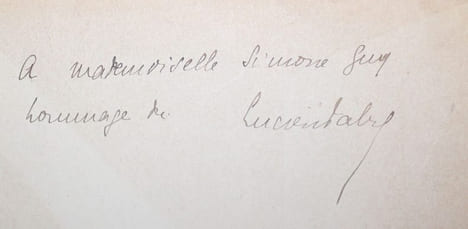 A mademoiselle Simone Guy
hommage de Lucien Fabre